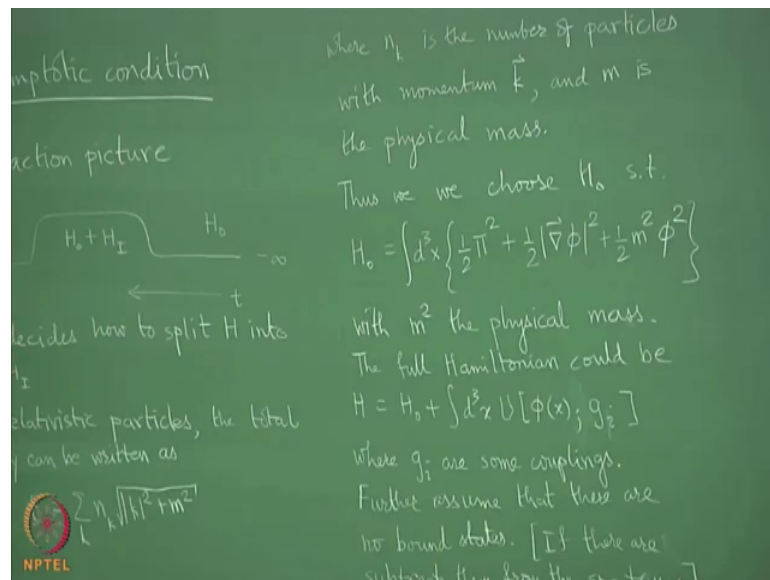 mptotic condition
action picture
H₀ + H_I
H₀
-∞
t
decides how to split H into
H_I
elativistic particles, the total
y can be written as
∑_k n_k √(|k|² + m²)
NPTEL
where n_k is the number of particles
with momentum k⃗, and m is
the physical mass.
Thus we we choose H₀ s.t.
H₀ = ∫d³x {½ π² + ½ |∇⃗φ|² + ½ m² φ²}
with m² the physical mass.
The full Hamiltonian could be
H = H₀ + ∫d³x U[φ(x); g_i]
where g_i are some couplings.
Further assume that there are
no bound states. [If there are
subtract them from the